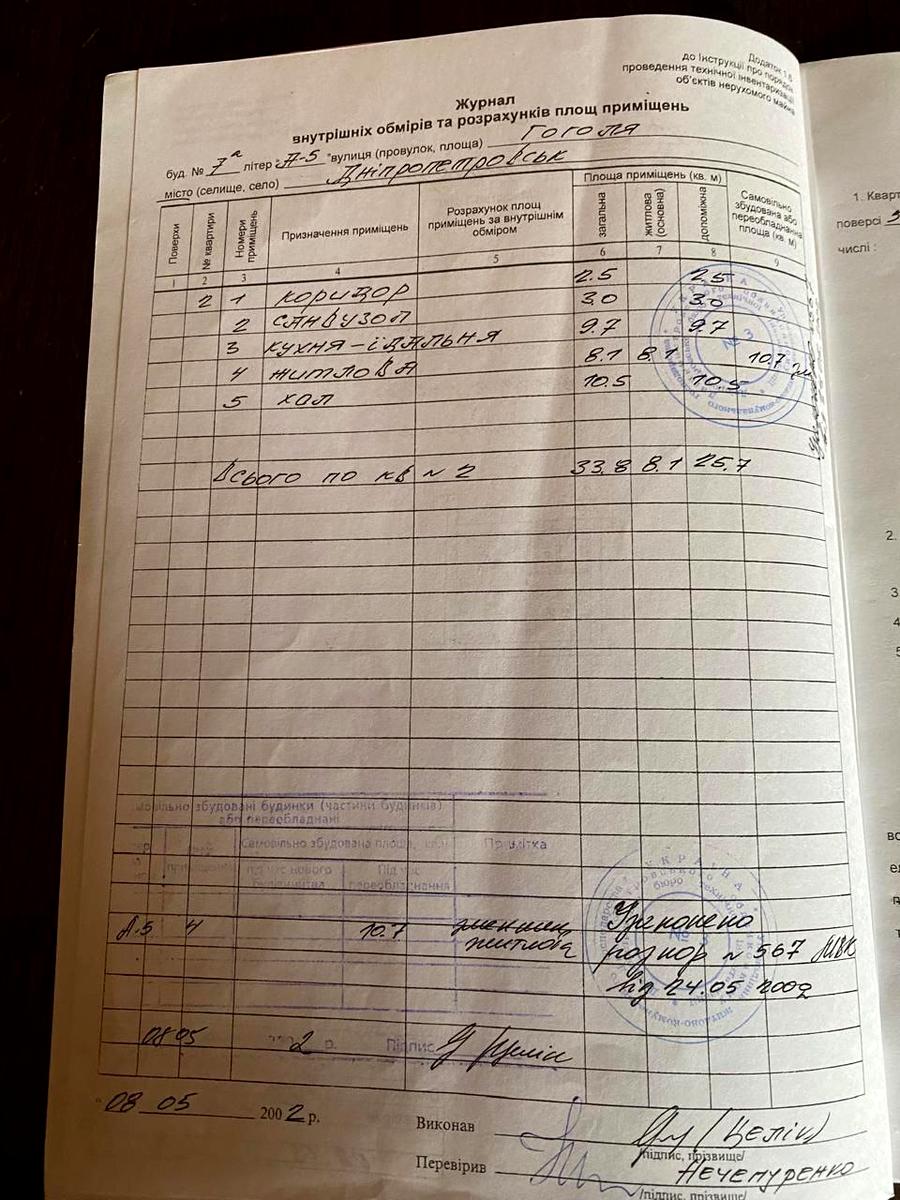 Додаток 1.6
до Інструкції про порядок
проведення технічної інвентаризації
об'єктів нерухомого майна
Журнал
внутрішніх обмірів та розрахунків площ приміщень
буд. № 7а літер "А-5" вулиця (провулок, площа) Гоголя
місто (селище, село) Дніпропетровськ
Поверхи № квартири Номери приміщень Призначення приміщень Розрахунок площ приміщень за внутрішнім обміром Площа приміщень (кв. м) загальна житлова (основна) допоміжна Самовільно збудована або переобладнанна площа (кв. м)
1 2 3 4 5 6 7 8 9
2 1 коридор 2.5 2.5
2 санвузол 3.0 3.0
3 кухня-їдальня 9.7 9.7
4 житлова 8.1 8.1 10.7
5 хол 10.5 10.5
Всього по кв N 2 33.8 8.1 25.7
збудовані будинки (частини будинків)
або переобладнані
Самовільно збудована площа, кв.м Примітка
під час нового будівництва Під час переобладнання
А-5 4 10.7 житлова
Узаконено
розпор N 567 МВК
від 24.05 2002
08 05 2 р. Підпис
08 05 2002 р.
Виконав (Целік)
/підпис, прізвище/
Перевірив Нечепуренко
/підпис, прізвище/
№ 3
УКРАЇНА
бюро
1. Кварт
поверсі
числі :
2.
3
4
5